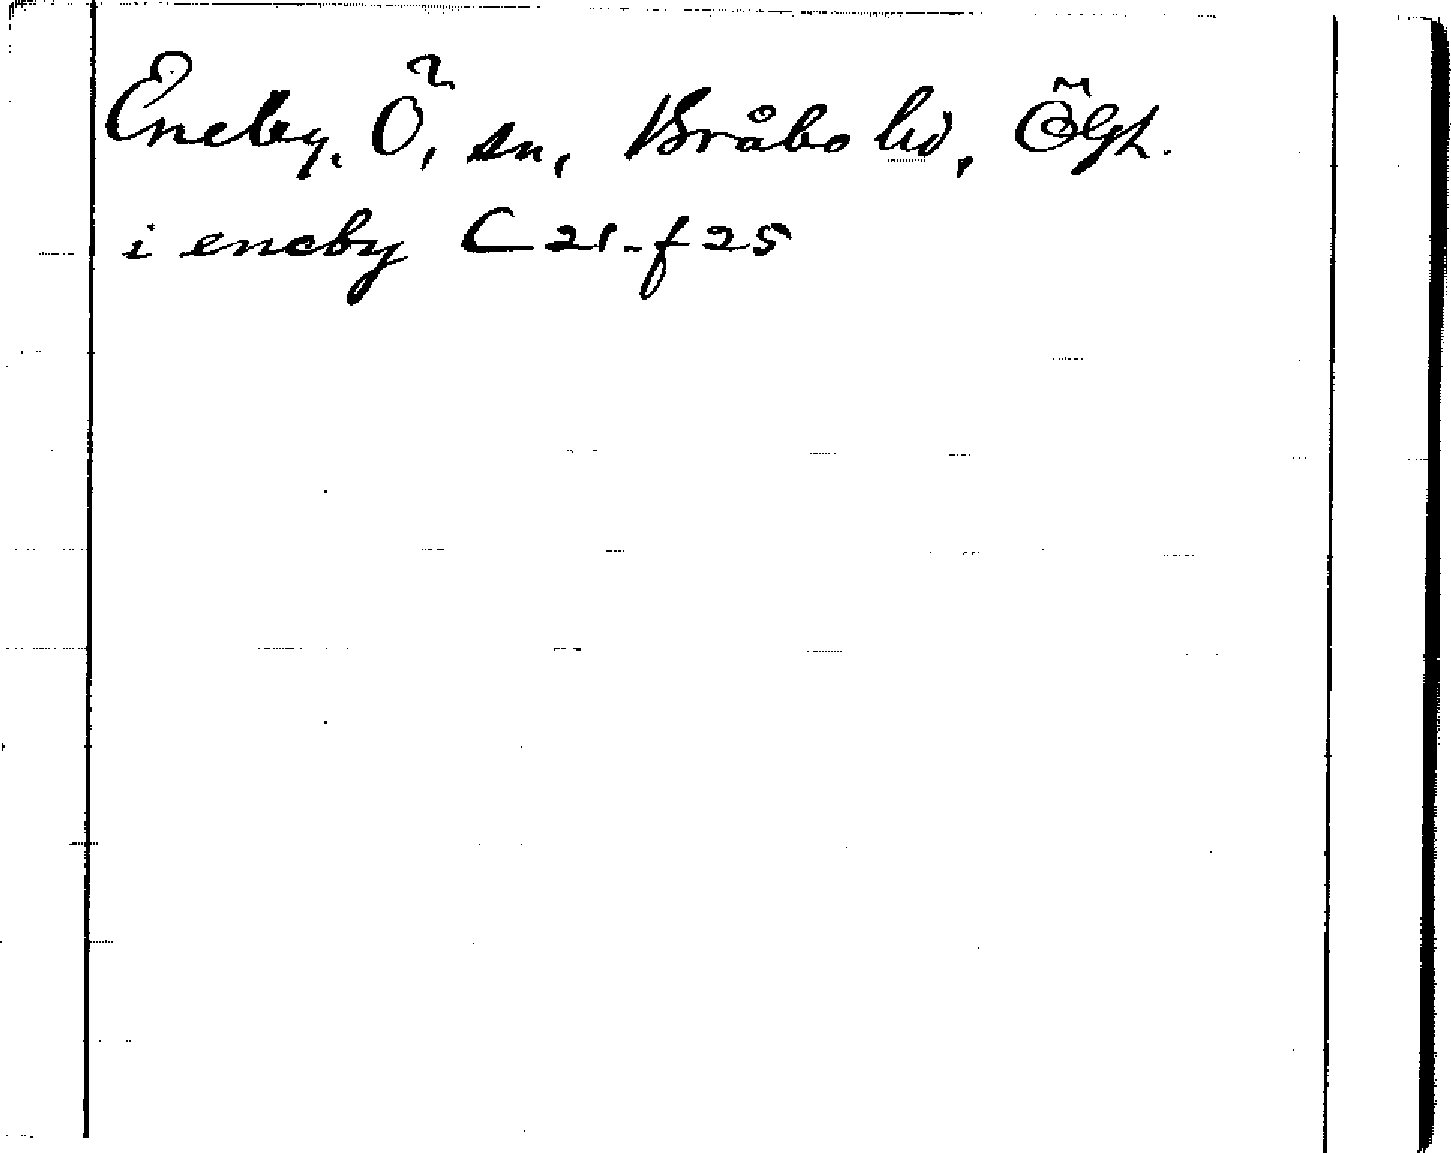 Eneby, Ö, sn, Bråbo hd, Ögl.
i eneby C 21-f 25